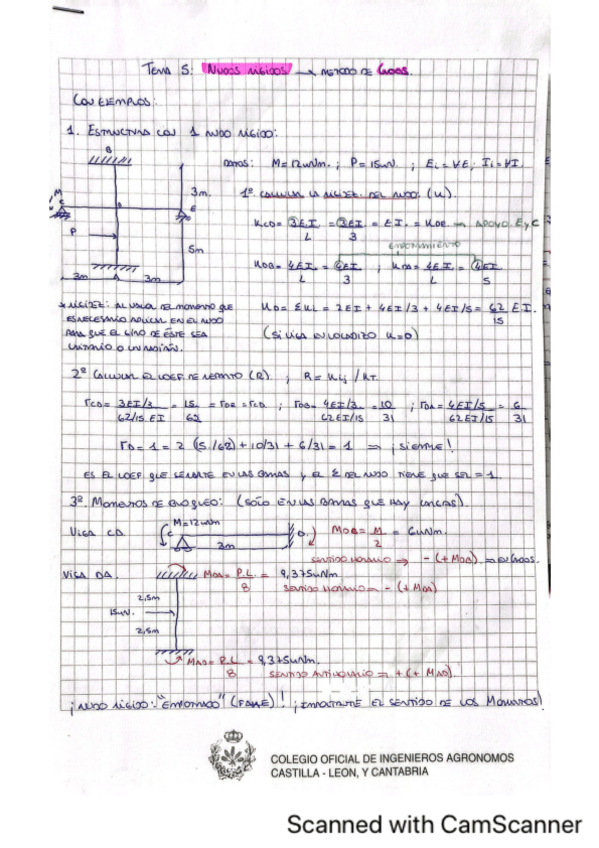 TEMA 5: NUDOS RÍGIDOS → MÉTODO DE CROSS.
CON EJEMPLOS:
1. ESTRUCTURA CON 1 NUDO RÍGIDO:
B
DATOS: M=12kNm. ; P=15kN ; Ei=∀E; Ii=∀I.
3m.
1º CALCULAR LA RIGIDEZ DEL NUDO. (K)
M
C
E
KCD= 3EI/L = 3EI/3 = EI. = KDE → APOYO E y C
P
5m
EMPOTRAMIENTO
KDB= 4EI/L = 4EI/3 ; KDA= 4EI/L = 4EI/5
3m
3m
* RIGIDEZ: AL VALOR DEL MOMENTO QUE
KD= ΣKL = 2EI + 4EI/3 + 4EI/5= 62/15 EI.
ES NECESARIO APLICAR EN EL NUDO
PARA QUE EL GIRO DE ÉSTE SEA
(SI VIGA EN VOLADIZO K=0)
UNITARIO O UN RADIÁN.
2º CALCULAR EL COEF. DE REPARTO (R). ; R= Kij / KT.
rCD= 3EI/3 / 62/15.EI = 15/62 = rDE = rCD ; rDB= 4EI/3 / 62EI/15 = 10/31 ; rDA= 4EI/5 / 62EI/15 = 6/31
rD= 1 = 2 (15/62) + 10/31 + 6/31 = 1 ⇒ ¡SIEMPRE!
ES EL COEF QUE SE REPARTE EN LAS BARRAS y EL Σ DEL NUDO TIENE QUE SER = 1.
3º. MOMENTOS DE BLOQUEO: (SÓLO EN LAS BARRAS QUE HAY CARGAS).
M=12kNm
VIGA CD.
C
D.
MDC= M/2 = 6kNm.
3m
SENTIDO HORARIO ⇒ - (+ MDA) ⇒ EN CROSS.
VIGA DA.
MDA= P.L./8 = 9,375kNm
SENTIDO HORARIO ⇒ - (+ MDA)
2,5m
15kN.
2,5m
MAD= P.L/8 = 9,375kNm.
SENTIDO ANTIHORARIO ⇒ +(+ MAD).
¡NUDO RÍGIDO: "EMPOTRADO" (FALSE)! ¡IMPORTANTE EL SENTIDO DE LOS MOMENTOS!
COLEGIO OFICIAL DE INGENIEROS AGRONOMOS
CASTILLA - LEON, Y CANTABRIA
Scanned with CamScanner